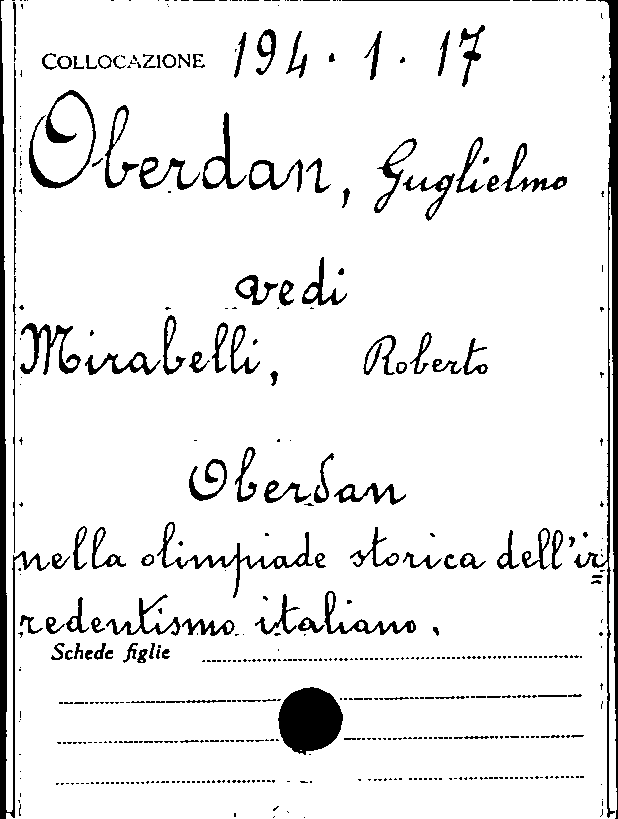 COLLOCAZIONE 194.1.17
Oberdan, Guglielmo
vedi
Mirabelli, Roberto
Oberdan
nella olimpiade storica dell'ir=
redentismo italiano.
Schede figlie